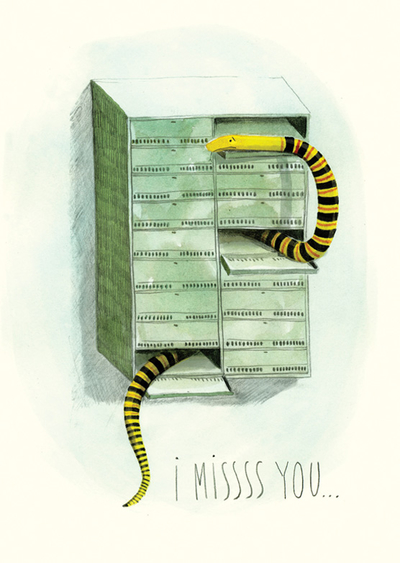 i MiSSSS YOU...